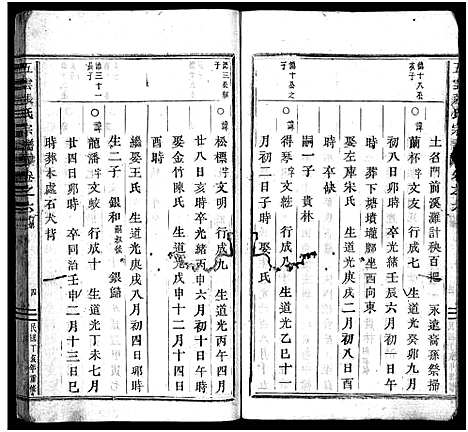 德十八公次子
土名門前溪灘計秧百把
永遠爲孫祭掃
○諱蘭杯 諱文友 行成七 生道光癸卯九月
初八日卯時 卒光緒壬辰六月初一日午
時 葬下塘墳壠鄭坐西向東
娶左庫朱氏 生道光庚戌二月初八日酉
時 卒缺
嗣一子 貴林
德十公之子
○諱得琴 諱文 行成八 生道光乙巳十一
月初二日子時 娶 氏
五雲 氏宗譜 卷之六
四
民國丁亥年重修
德三公幼子
○諱松標 諱文明 行成九 生道光丙午四月
廿八日亥時卒光緒丙申六月初十日午時
娶金竹陳氏 生道光戊申十二月十四日
酉時
繼娶王氏 生道光庚戌八月初四日卯時
生二子 銀和 銀歸
德三十一長子
○諱龍潘 諱文 行成十 生道光丁未七月
廿四日卯時 卒同治壬申二月十三日巳
時葬本處石犬背